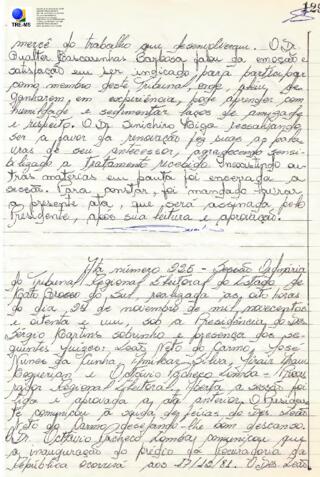 128
TRE-MS
mercê do trabalho que desenvolveram. O Dr.
Gualter Mascarenhas Barbosa falou da emoção e
satisfação em ser indicado para participar
como membro deste Tribunal, onde, além de
ganharem, em experiência, pode aprender com
humildade e sedimentar laços de amizade
e respeito. O Dr. Sinichiro
ser a favor da renovação fez suas as pala-
vras de seu antecessor, agradecendo sensi-
bilizado o tratamento recebido. Inexistindo ou-
tras matérias em pauta foi encerrada a
sessão. Para constar, foi mandado lavrar
a presente ata, que será assinada pelo
Presidente, após sua leitura e aprovação.
Ata número 226 - Sessão Ordinária
do Tribunal Regional Eleitoral do Estado de
Mato Grosso do Sul, realizada às oito horas
do dia 24 de novembro de mil novecentos
e oitenta e um, sob a Presidência do Des.
Sérgio Martins Sobrinho e presença dos se-
guintes Juízes: Leão Neto do Carmo, José
Nunes da Cunha, Amilcar Silva,
e Octávio Pacheco Lomba -
rador Regional Eleitoral. Aberta a sessão foi
lida e aprovada a ata anterior. O Presiden-
te comunicou a saída de férias do Des. Leão
Neto do Carmo, desejando-lhe bom descanso.
O Dr. Octávio Pacheco Lomba comunicou que
a inauguração do prédio da Procuradoria da
República ocorrerá aos 17/12/81. O Des. Leão